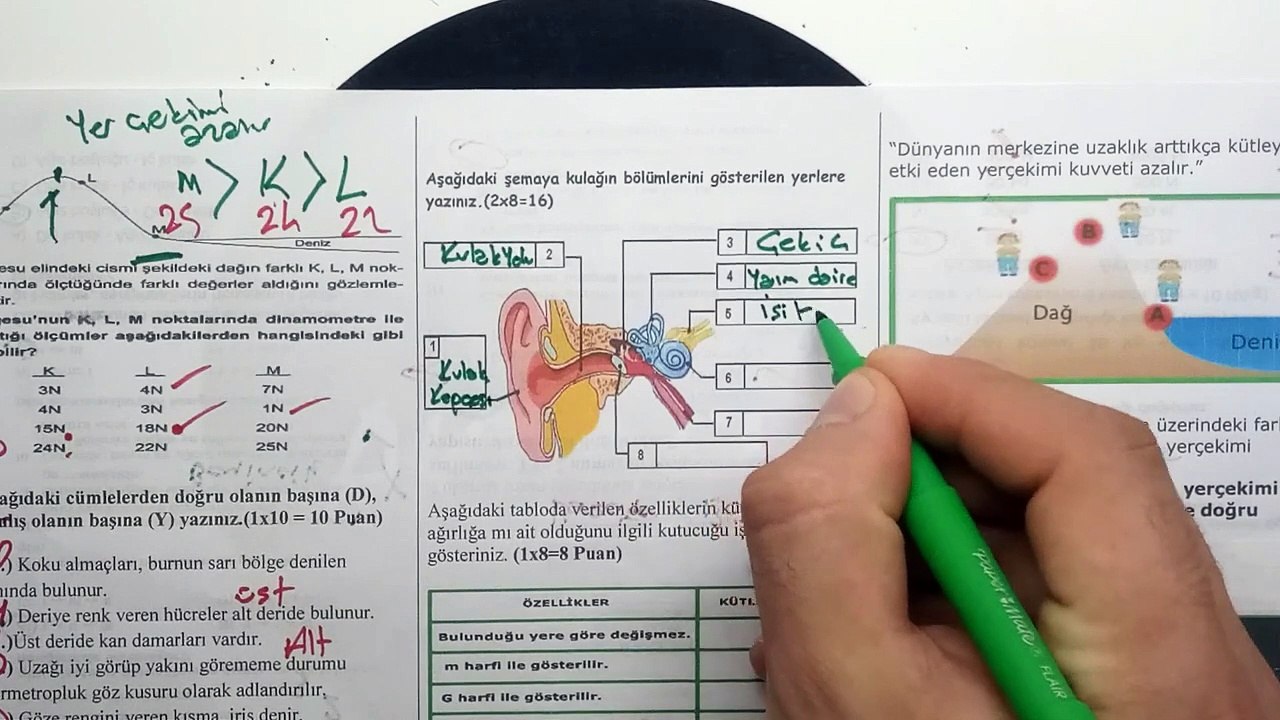 Yer Çekimi
azalır
L
M > K > L
25 24 22
M
Deniz
esu elindeki cismi şekildeki dağın farklı K, L, M nok-
rında ölçtüğünde farklı değerler aldığını gözlemle-
ir.
gesu'nun K, L, M noktalarında dinamometre ile
tığı ölçümler aşağıdakilerden hangisindeki gibi
bilir?
K L M
3N 4N 7N
4N 3N 1N
15N 18N 20N
24N 22N 25N
ağıdaki cümlelerden doğru olanın başına (D),
nlış olanın başına (Y) yazınız.(1x10 = 10 Puan)
.) Koku almaçları, burnun sarı bölge denilen
ında bulunur.
üst
) Deriye renk veren hücreler alt deride bulunur.
.)Üst deride kan damarları vardır.
Alt
) Uzağı iyi görüp yakını görememe durumu
rmetropluk göz kusuru olarak adlandırılır.
Göze rengini veren kısma, iris denir.
Aşağıdaki şemaya kulağın bölümlerini gösterilen yerlere
yazınız.(2x8=16)
Kulak Yolu 2
3 Çekiç
4 Yarım daire
5 işit
1
Kulak
Kepçesi
6
7
8
Aşağıdaki tabloda verilen özelliklerin kü
ağırlığa mı ait olduğunu ilgili kutucuğu iş
gösteriniz. (1x8=8 Puan)
ÖZELLİKLER KÜTL
Bulunduğu yere göre değişmez.
m harfi ile gösterilir.
G harfi ile gösterilir.
“Dünyanın merkezine uzaklık arttıkça kütley
etki eden yerçekimi kuvveti azalır.”
B
C
A
Dağ
Deni
üzerindeki farl
yerçekimi
yerçekimi
e doğru
PaperMate FLAIR